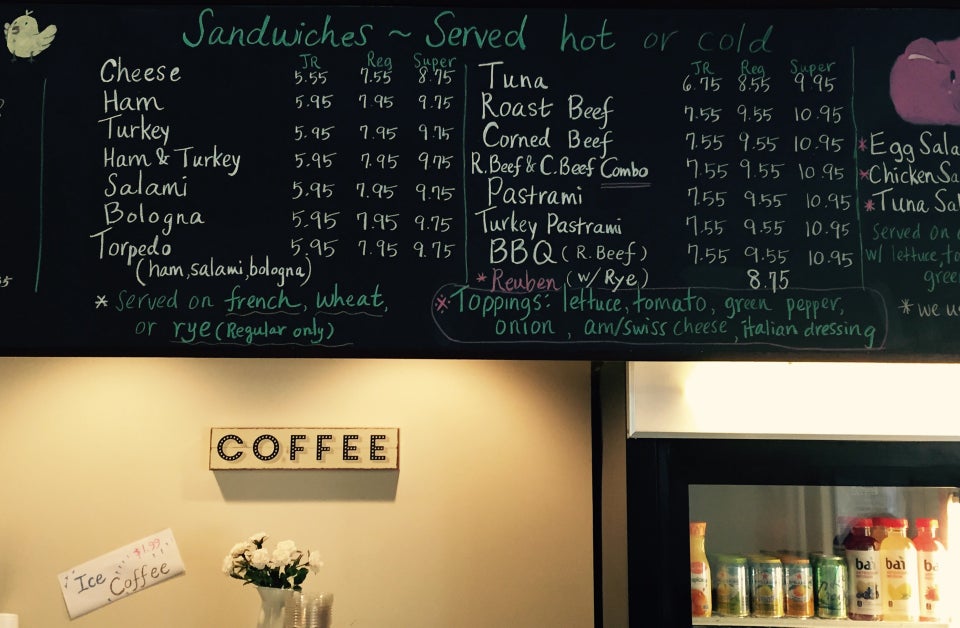 Sandwiches ~ Served hot or cold
JR Reg Super
Cheese 5.55 7.55 8.75
Ham 5.95 7.95 9.75
Turkey 5.95 7.95 9.75
Ham & Turkey 5.95 7.95 9.75
Salami 5.95 7.95 9.75
Bologna 5.95 7.95 9.75
Torpedo 5.95 7.95 9.75
(ham, salami, bologna)
* Served on french, wheat,
or rye (Regular only)
JR Reg Super
Tuna 6.75 8.55 9.95
Roast Beef 7.55 9.55 10.95
Corned Beef 7.55 9.55 10.95
R.Beef & C.Beef Combo 7.55 9.55 10.95
Pastrami 7.55 9.55 10.95
Turkey Pastrami 7.55 9.55 10.95
BBQ (R. Beef) 7.55 9.55 10.95
* Reuben (w/ Rye) 8.75
* Toppings: lettuce, tomato, green pepper,
onion, am/swiss cheese, italian dressing
* Egg Sala
* Chicken Sa
* Tuna Sal
served on
w/ lettuce, to
green
* we us
COFFEE
$1.99
Ice Coffee
bai bai ba